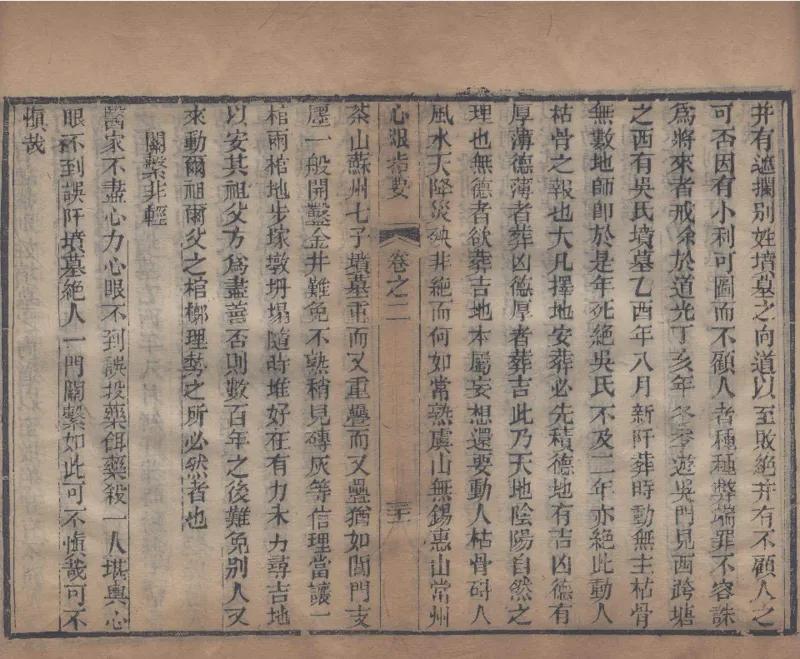 并有遮攔別姓墳墓之向道以至敗絕并有不顧人之
可否因有小利可圖而不顧人者種種弊端罪不容誅
爲將來者戒余於道光丁亥年冬季遊吳門見西跨塘
之西有吳氏墳墓乙酉年八月新阡葬時動無主枯骨
無數地師卽於是年死絕吳氏不及二年亦絕此動人
枯骨之報也大凡擇地安葬必先積德地有吉凶德有
厚薄德薄者葬凶德厚者葬吉此乃天地陰陽自然之
理也無德者欲葬吉地本屬妄想還要動人枯骨碍人
風水天降災殃非絕而何如常熟虞山無錫惠山常州
心眼指要
卷之二
茶山蘇州七子墳墓重而又重疊而又疊猶如閶門支
壥一般開鑿金井難免不熟稍見磚灰等信理當讓一
棺兩棺地步塚墩坍塌隨時堆好在有力未力尋吉地
以安其祖父方爲盡善否則數百年之後難免別人又
來動爾祖爾父之棺槨理勢之所必然者也
關繫非輕
醫家不盡心力心眼不到誤投藥餌藥殺一人堪輿心
眼不到誤阡墳墓絕人一門關繫如此可不慎哉可不
慎哉